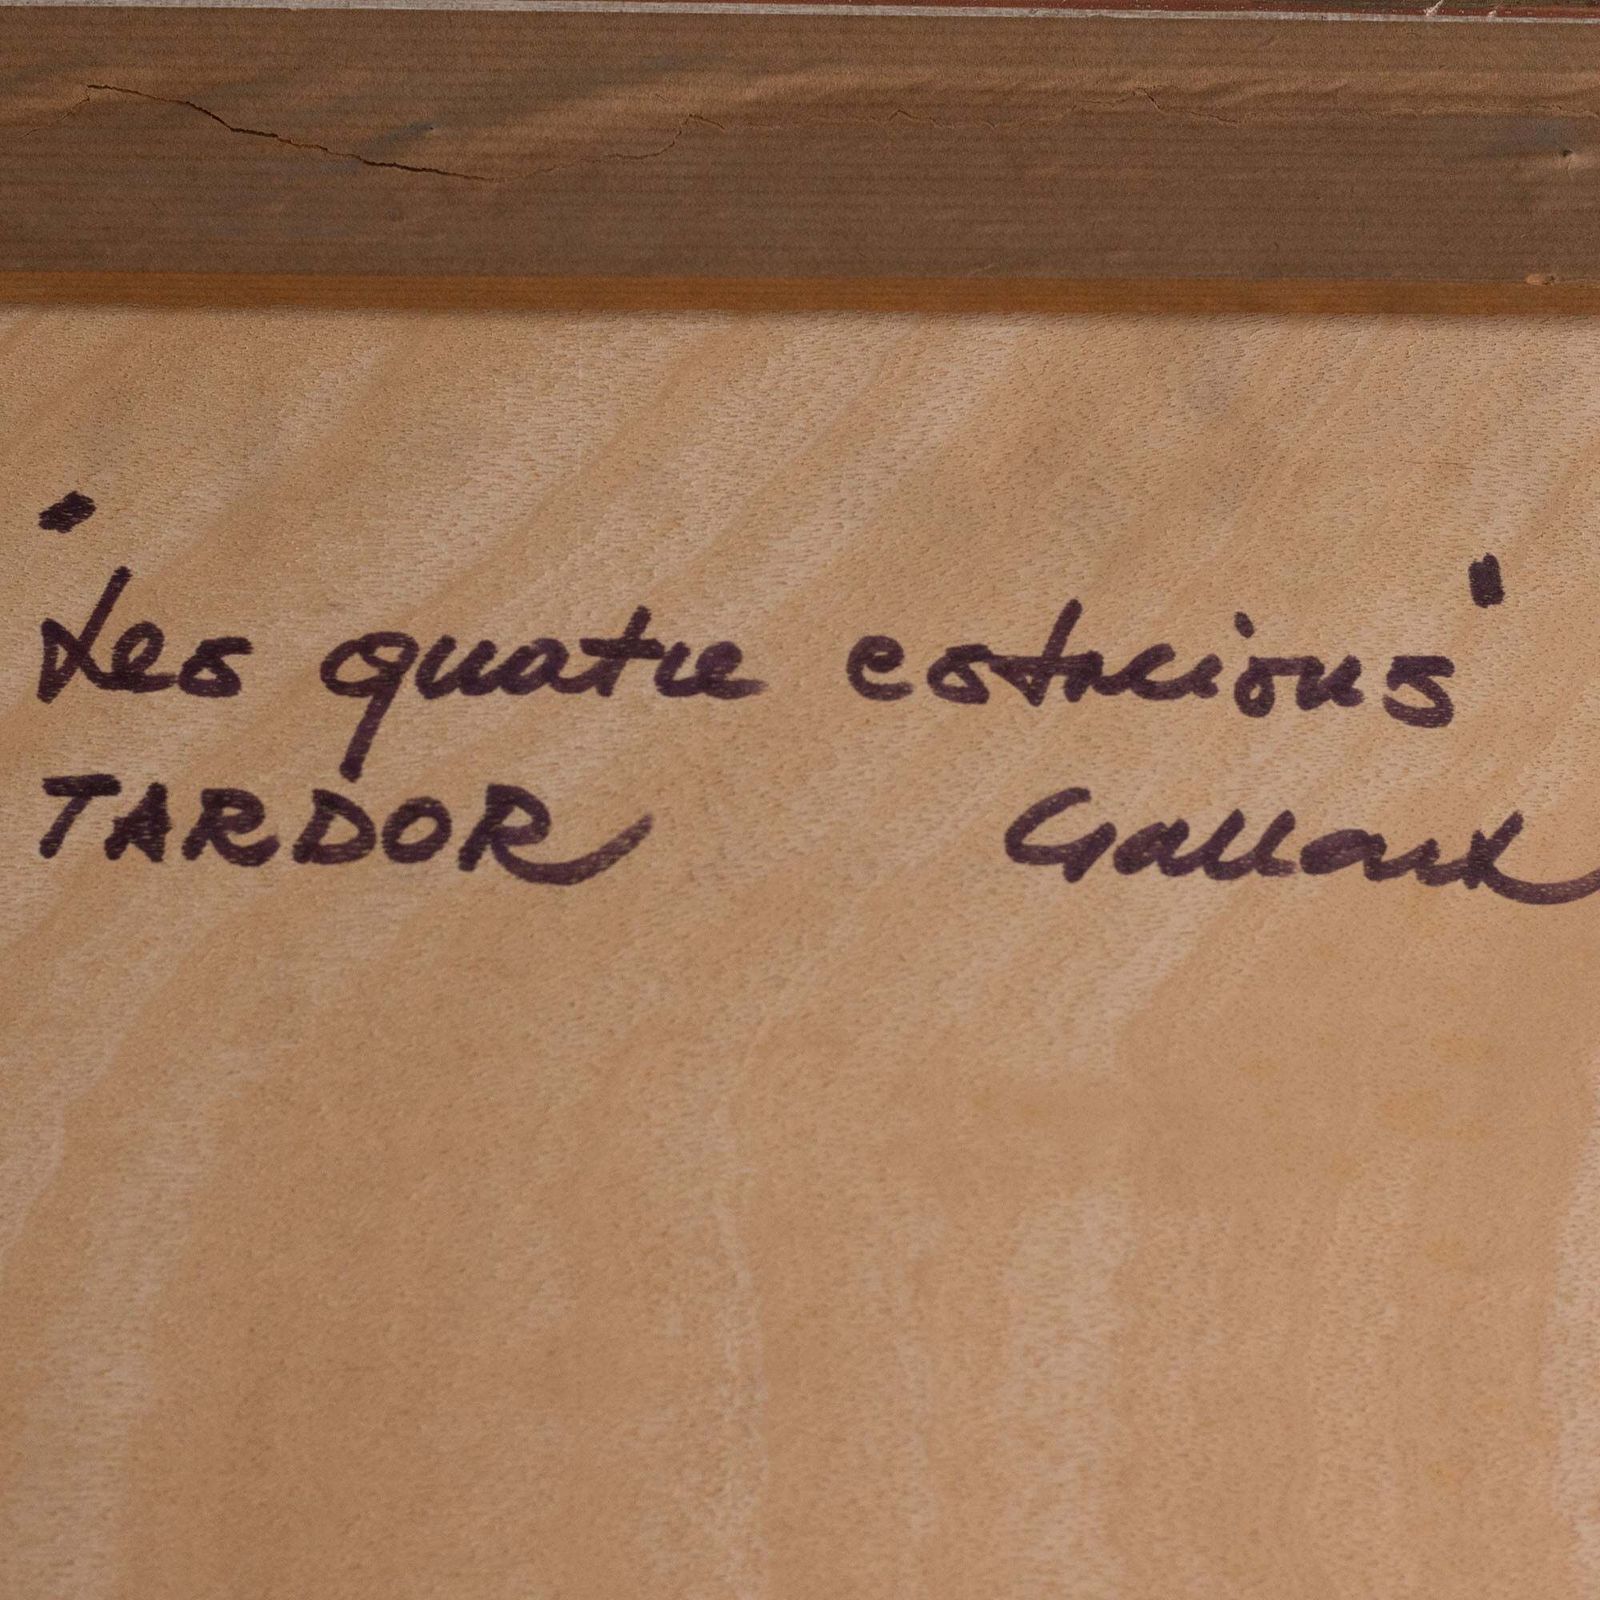 "Les quatre estacions"
TARDOR Gallart